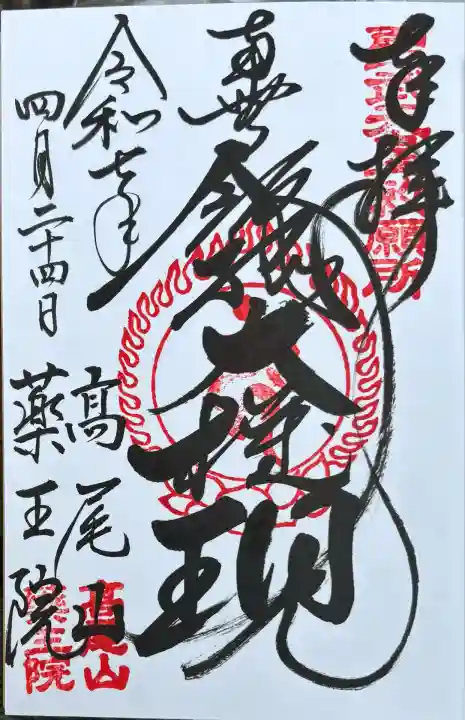 奉拝
南無飯縄大権現
令和七年
四月二十四日
髙尾山
薬王院
髙尾山
薬王院